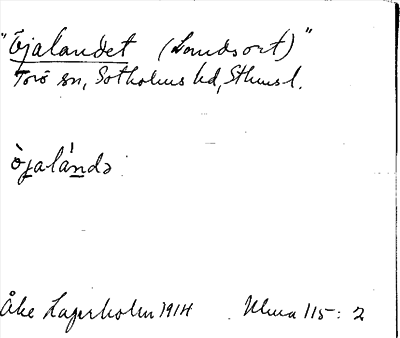 "Öjalandet (Landsort)"
Torö sn, Sotholms hd, Sthms l.
òjalándə
Åke Lagerholm 1914 Ulma 115: 2